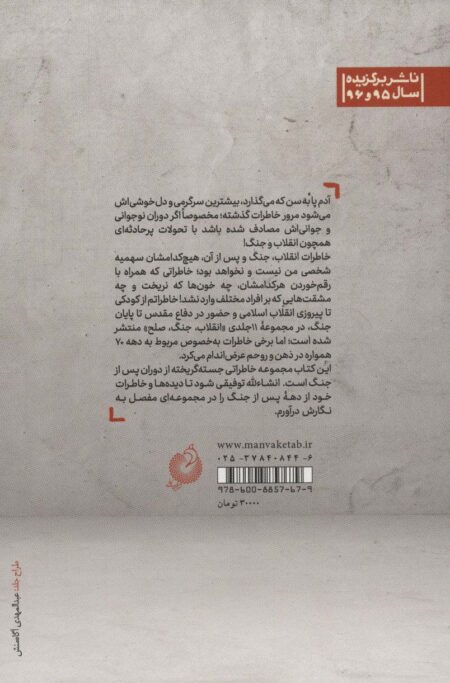 ناشر برگزیده
سال ۹۵ و ۹۶
آدم پا به سن که می‌گذارد، بیشترین سرگرمی و دل‌خوشی‌اش
می‌شود مرور خاطرات گذشته؛ مخصوصاً اگر دوران نوجوانی
و جوانی‌اش مصادف شده باشد با تحولات پرحادثه‌ای
همچون انقلاب و جنگ!
خاطرات انقلاب، جنگ و پس از آن، هیچ‌کدامشان سهمیه
شخصی من نیست و نخواهد بود؛ خاطراتی که همراه با
رقم‌خوردن هرکدامشان، چه خون‌ها که نریخت و چه
مشقت‌هایی که بر افراد مختلف وارد نشد! خاطراتم از کودکی
تا پیروزی انقلاب اسلامی و حضور در دفاع مقدس تا پایان
جنگ، در مجموعهٔ ۱۱جلدی «انقلاب، جنگ، صلح» منتشر
شده است؛ اما برخی خاطرات به‌خصوص مربوط به دهه ۷۰
همواره در ذهن و روحم عرض‌اندام می‌کرد.
این کتاب مجموعه خاطراتی جسته‌گریخته از دوران پس از
جنگ است. انشاءالله توفیقی شود تا دیده‌ها و خاطرات
خود از دههٔ پس از جنگ را در مجموعه‌ای مفصل به
نگارش درآورم.
www.manvaketab.ir
۰۲۵ -۳۷۸۴۰۸۴۴ -۶
۹۷۸-۶۰۰-۸۸۵۷-۶۷-۹
۳۰۰۰۰ تومان
طراح جلد: عبدالمهدی آگاه‌منش